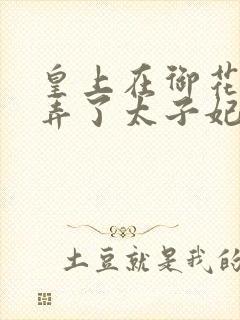 皇上在御花
弄了太子妃
土豆就是我的